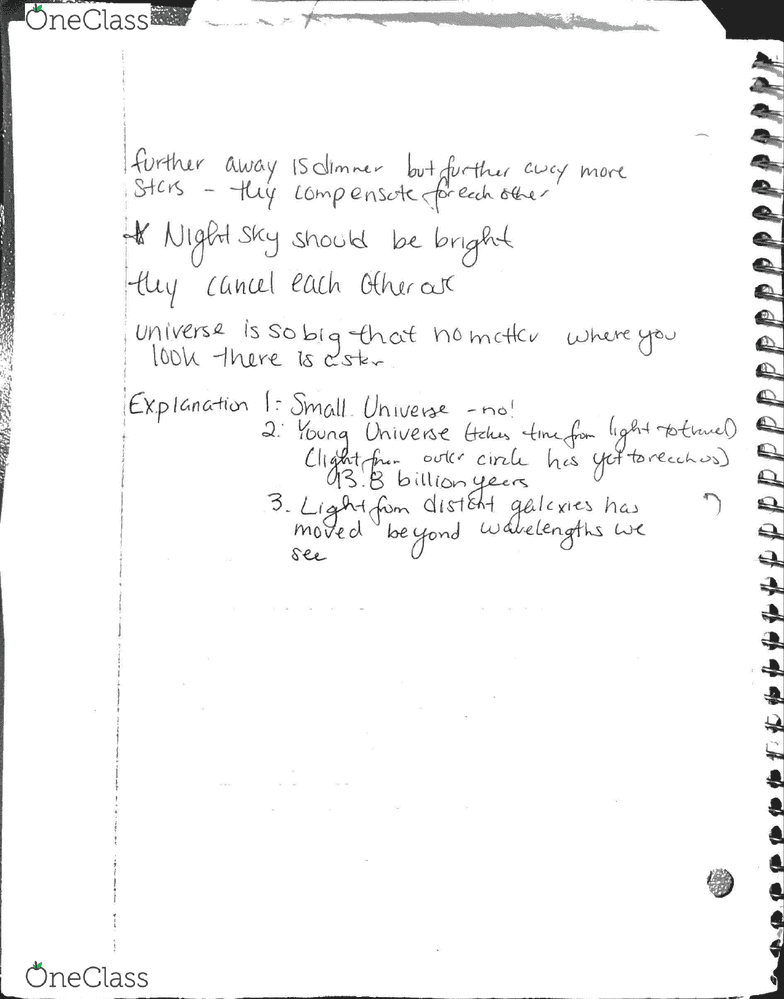 OneClass
further away is dimmer but further away more
stars - they compensate for each other
* Night sky should be bright
they cancel each other out
universe is so big that no matter where you
look there is a star
Explanation 1: Small Universe - no!
2. Young Universe (takes time from light to travel)
(light from outer circle has yet to reach us)
13.8 billion years
3. Light from distant galaxies has
moved beyond wavelengths we
see
OneClass